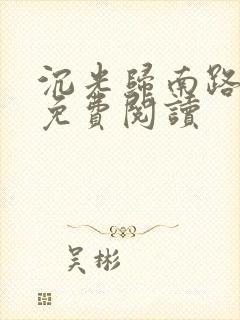 沉米歸南路
免費閱讀
吴彬